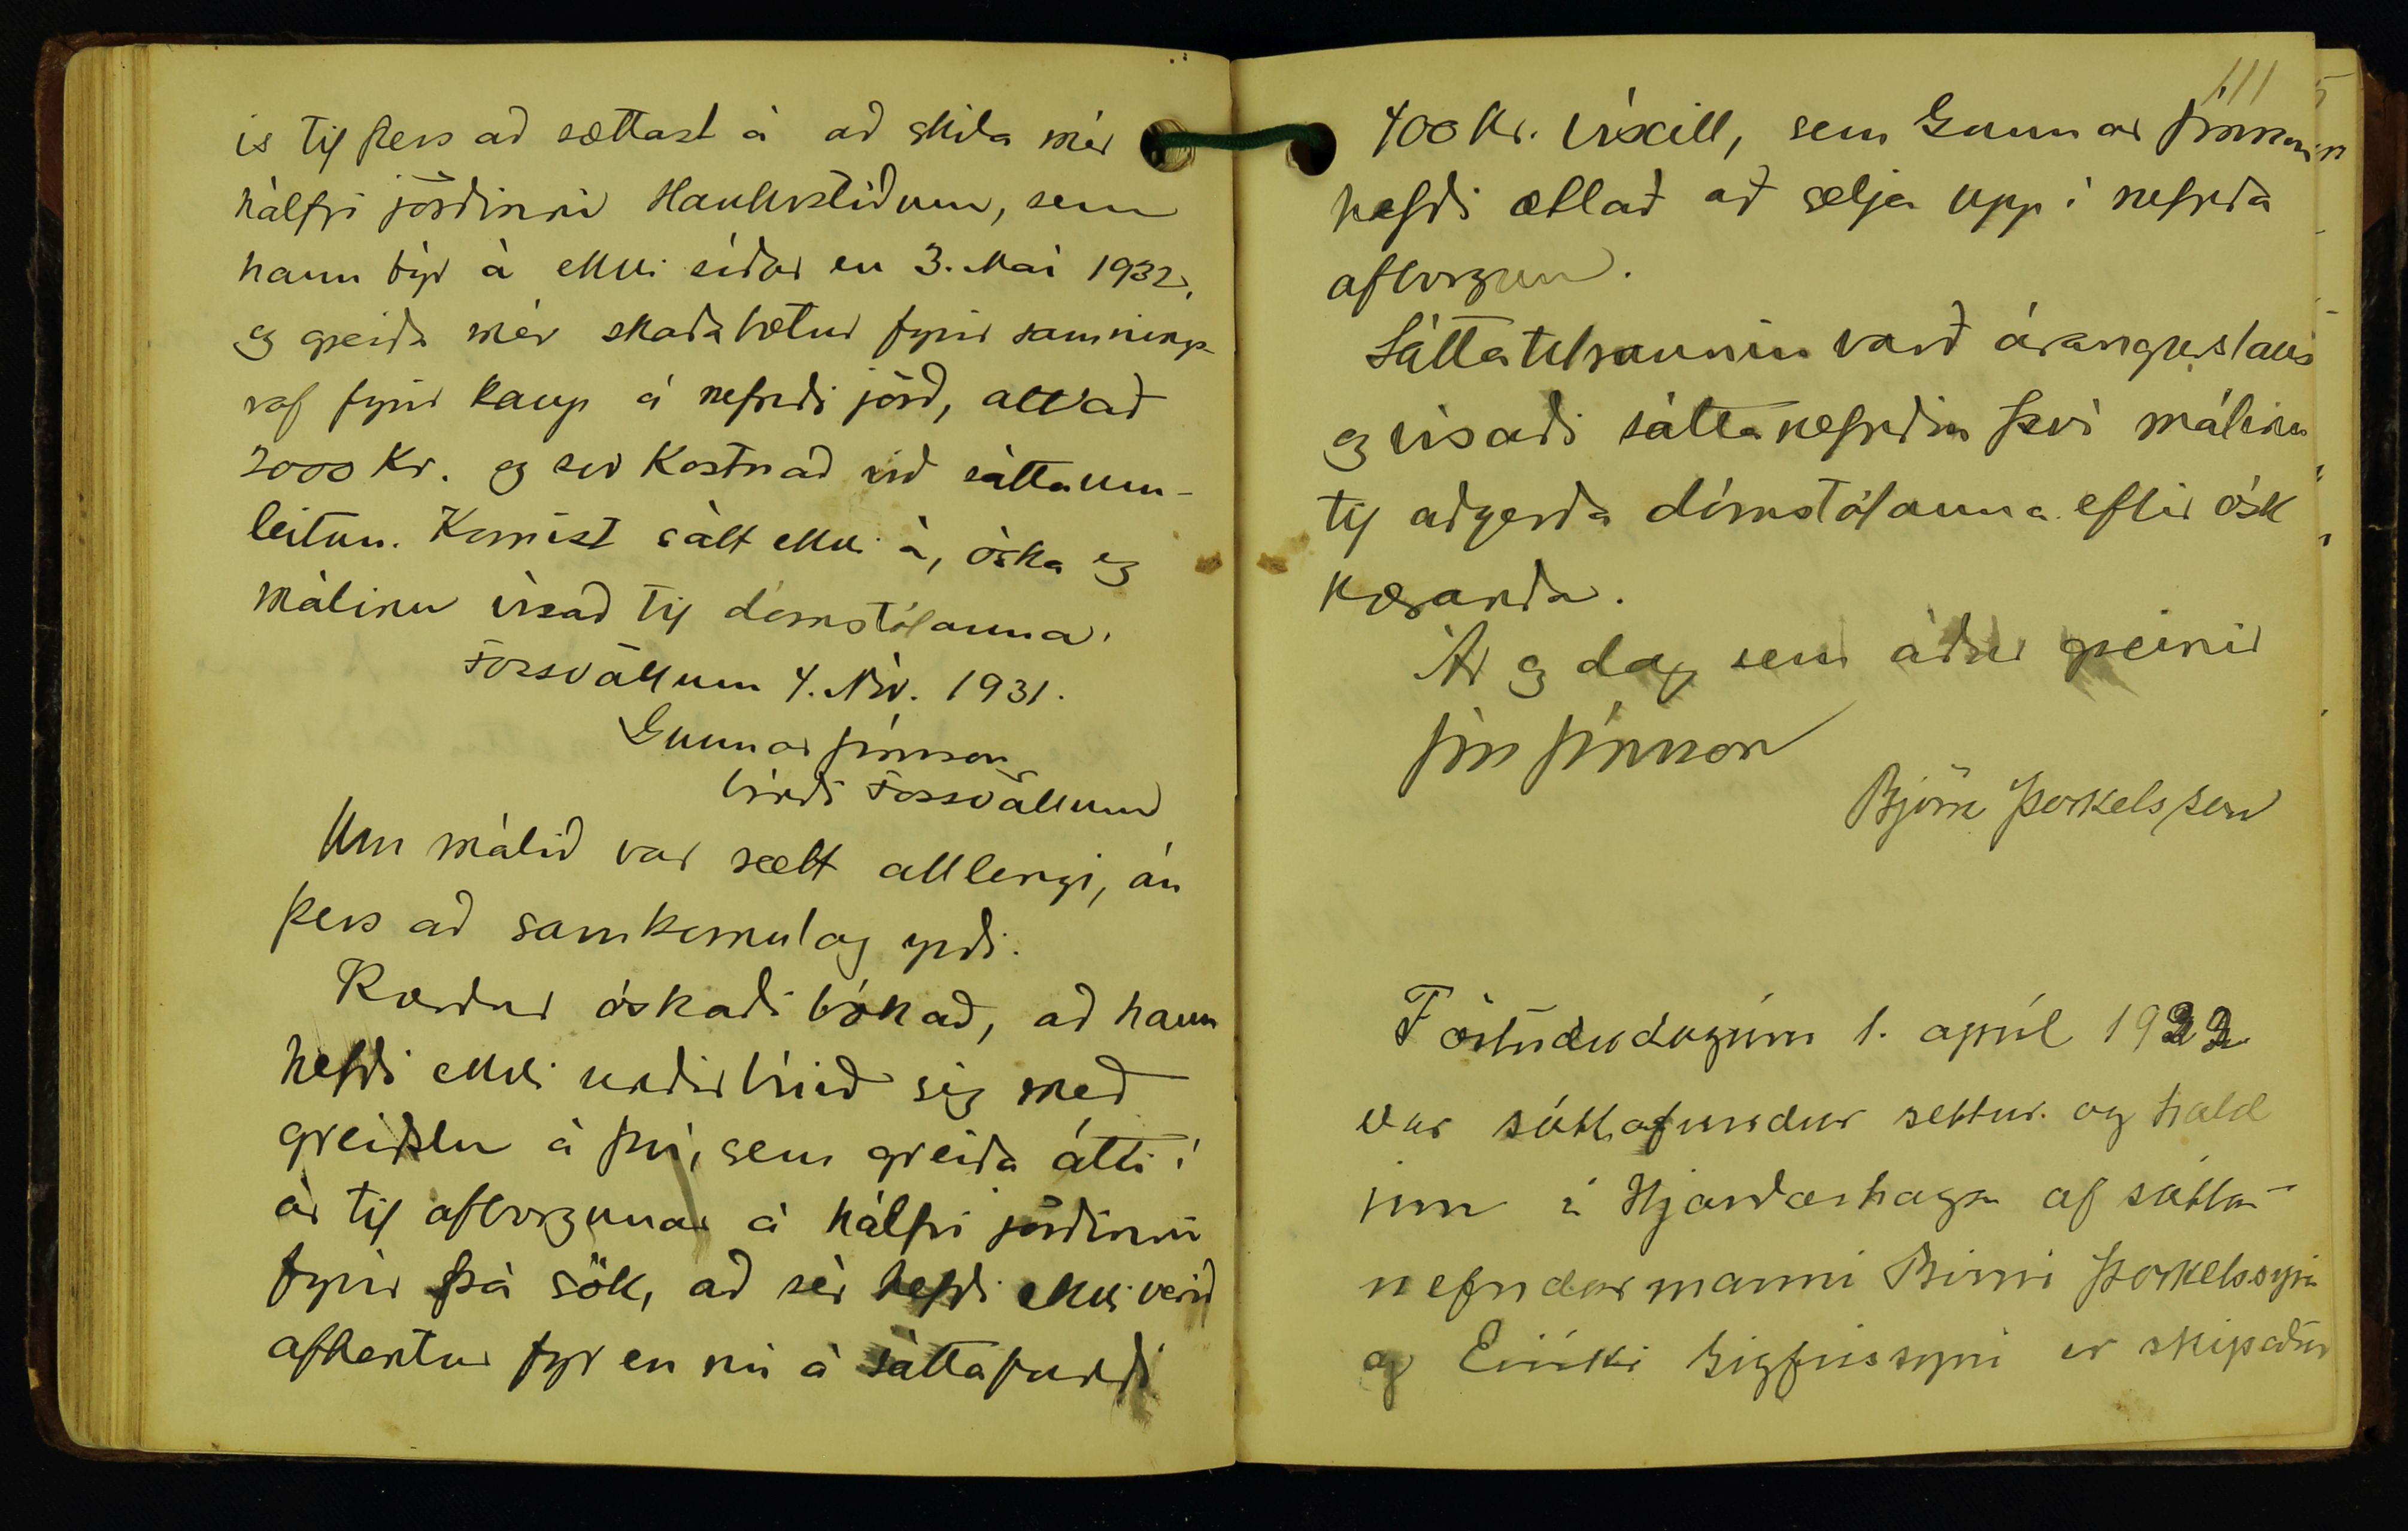 is til þess að sættast á að skila mér
hálfri jörðinni Hauksstöðum, sem
hann býr á ekki síðar en 3. Maí 1932,
og greiða mér skaðabætur fyrir samnings-
rof fyrir kaup á nefndri jörð, allt að
2000 Kr. og svo Kostnað við sáttaum-
leitun. Komist sátt ekki á, óska eg
málinu vísað til dómstólanna.
Fossvöllum 4. Nóv. 1931.
Gunnar Jónsson
bóndi Fossvöllum
Um málið var rætt alllengi, án
þess að samkomulag yrði.
Kærður óskaði bókað, að hann
hefði ekki undirbúið sig með
greiðslu á því, sem greiða átti í
ár til afborgunar á hálfri jörðinni
fyrir þá sök, að sér hefði ekki verið
afhentur fyr en nú á sáttafundi
111
400 Kr. víxill, sem Gunnar Jónsson
hefði ætlað að selja upp í nefnda
afborgun.
Sáttatilraunin varð árangurslaus
og vísaði sáttanefndin því málinu
til aðgerða dómstólanna eftir ósk
kæranda.
Ár og dag sem áður greinir
Jón Jónsson
Björn Þorkelsson
Föstudaginn 1. apríl 1932
var sáttafundur settur og hald
inn í Hjarðarhaga af sátta-
nefndarmanni Birni Þorkelssyni
og Eiríki Sigfússyni er skipaður